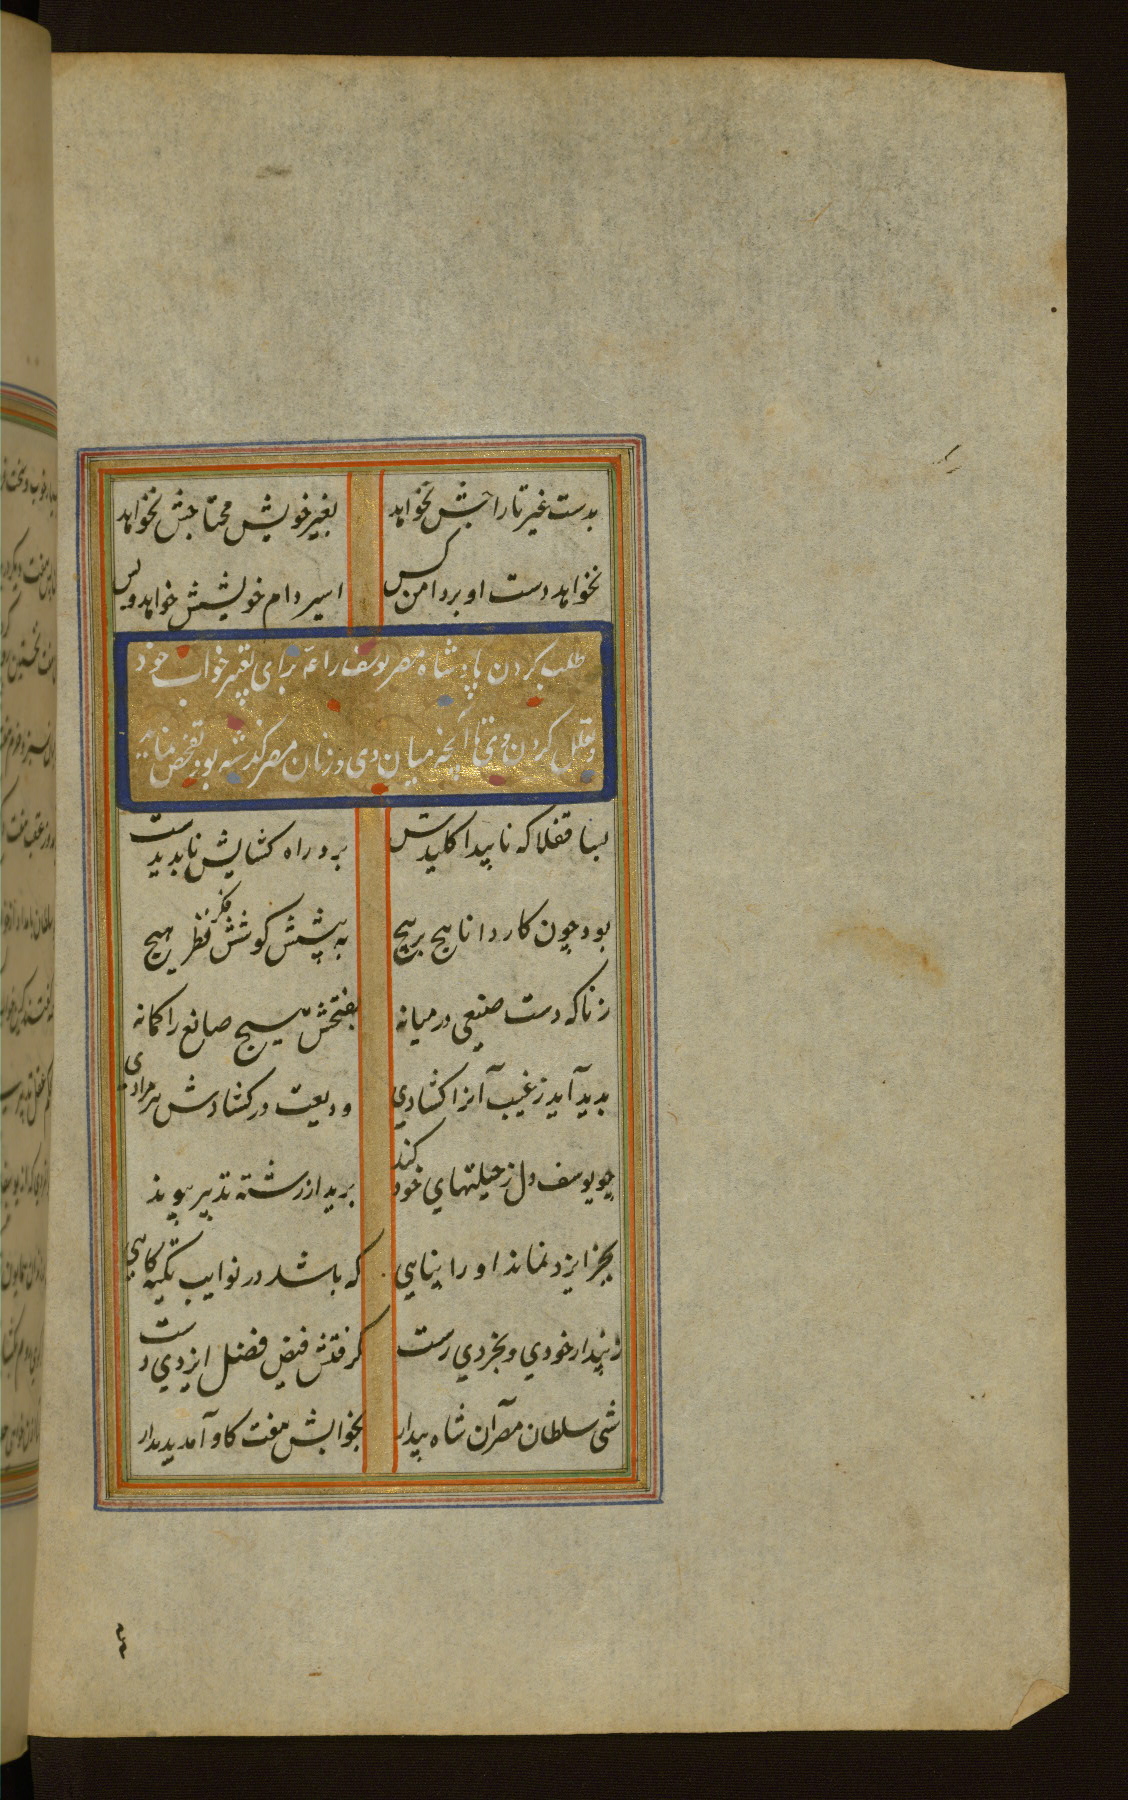 بدست غیر تاراجش نخواهد بغیر خویش محتاجش نخواهد
نخواهد دست او بر دامن کس اسیر دام خویشش خواهد و بس
طلب کردن پادشاه مصر یوسف را برای تعبیر خواب خود
کردن وی تا آنچه میان وی و زنان مصر گذشته بود تفحص نماید
بسا قفلا که ناپیدا کلیدست برو راه کشایش نابدیدست
بود چون کار دانا هیچ بر هیچ به پیشش کوشش فکر نظر هیچ
ز ناکه دست صنعی در میانه بفتحش هیچ صانع را کمانه
بدید آید ز غیب آنرا کشادی ودیعت در کشادش هر مرادی
چو یوسف دل ز حیلتهای خود کند برید از رشته تدبیر پیوند
بجز ایزد نماند او را پناهی که باشد در نوایب تکیه کاهی
ز پندار خودی و بخردی رست کرفتش فیض فضل ایزدی دست
شبی سلطان مصر آن شاه بیدار بخوابش هفت کاو آمد پدیدار